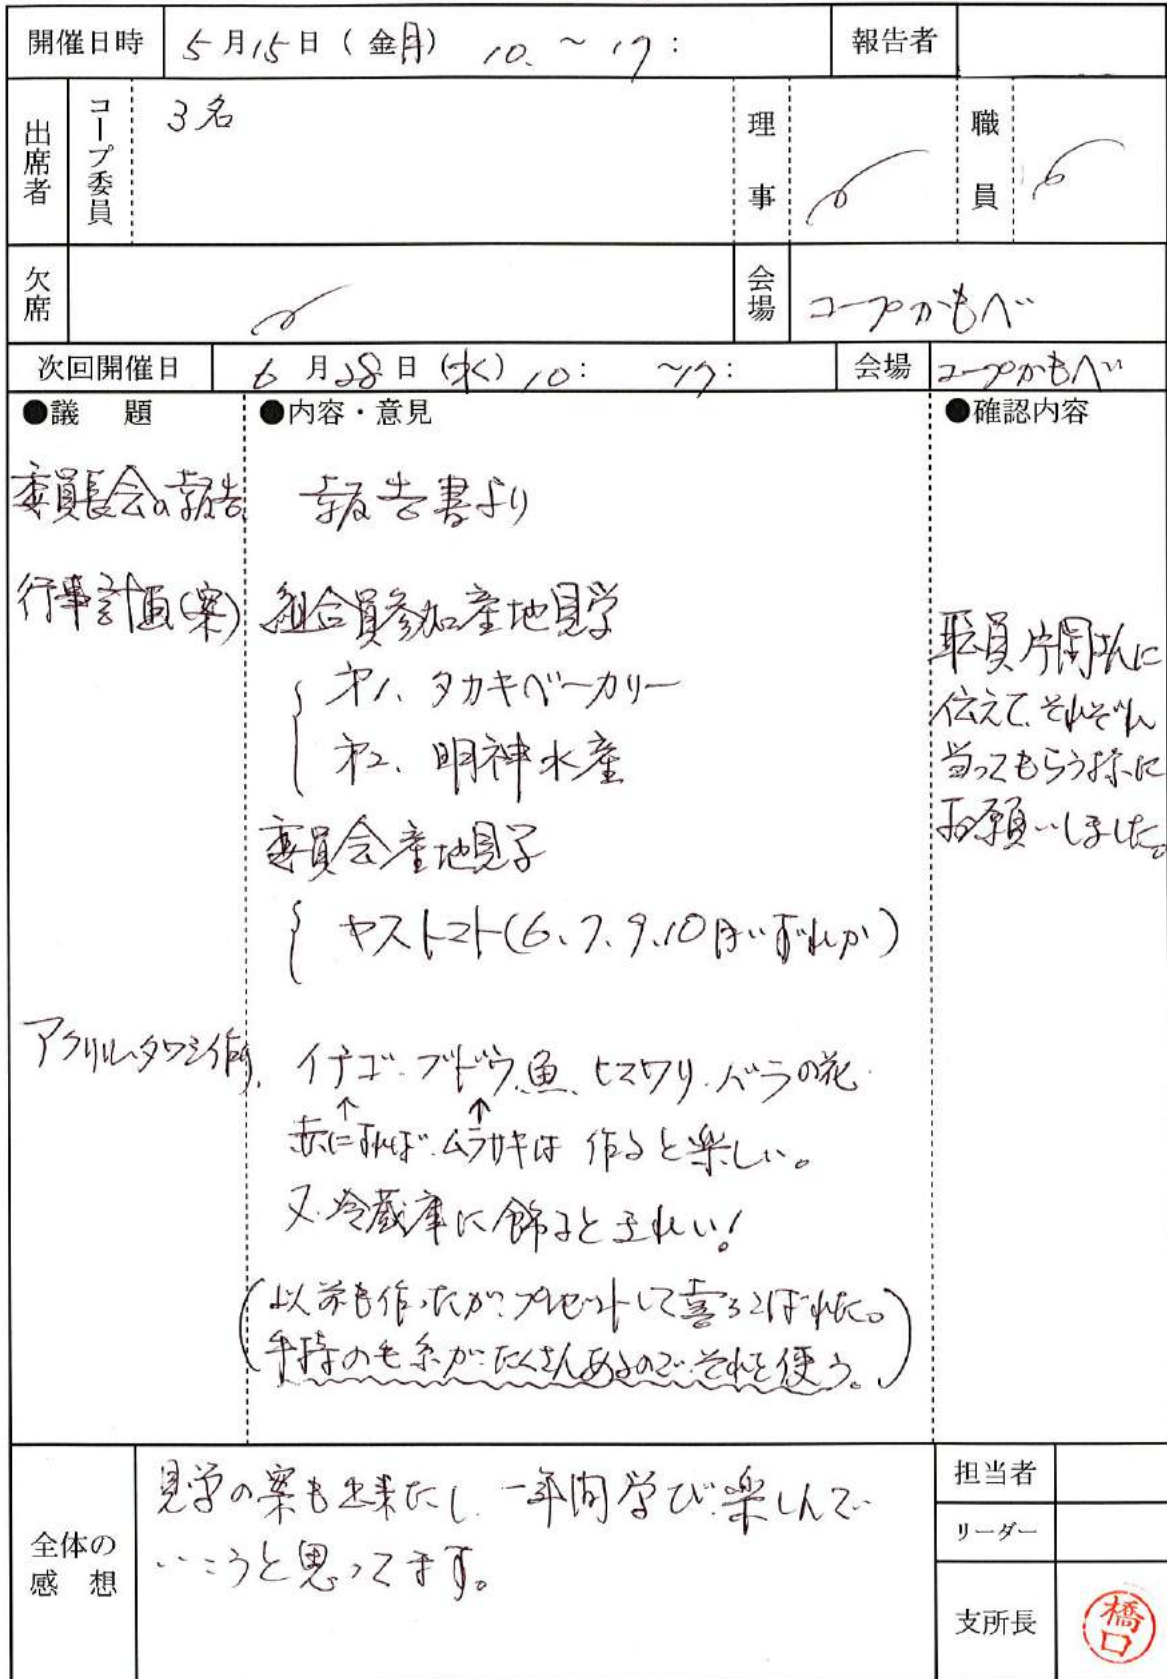 開催日時 5月15日(金月) 10. ~ 17: 報告者
出席者 コープ委員 3名 理事 職員
欠席 会場 コープかもべ
次回開催日 6月28日(水) 10: ~17: 会場 コープかもべ
●議題 ●内容・意見 ●確認内容
委員長会の報告 報告書より
行事計画(案) 組合員参加産地見学
第1、タカキベーカリー
第2、明神水産
委員会産地見学
ヤストマト(6、7、9、10月いずれか)
職員片岡さんに
伝えて、それぞれ
当ってもらう様に
お願いしました。
アクリルタワシ作り、 イチゴ・ブドウ、魚、ヒマワリ、バラの花
↑ ↑
赤にすれば ムラサキは 作ると楽しい。
又、冷蔵庫に飾るときれい!
(以前も作ったが、プレゼントして喜ろこばれた。)
(手持の毛糸がたくさんあるので、それを使う。)
全体の感想 見学の案も出来たし、一年間学び、楽しんで
いこうと思ってます。
担当者
リーダー
支所長 橋口